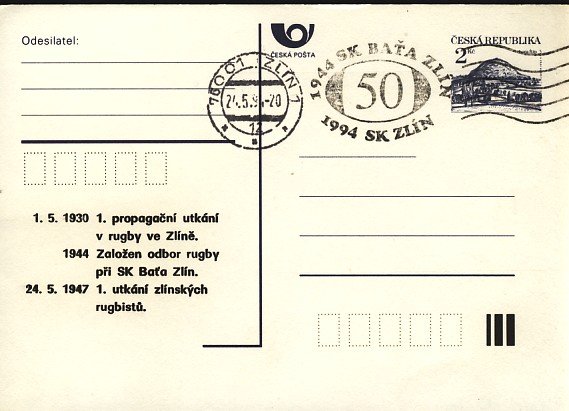 Odesilatel:
ČESKÁ POŠTA
ČESKÁ REPUBLIKA
2 Kč
76001 ZLÍN 1
24.5.94-20
1z
1944 SK BAŤA ZLÍN
50
1994 SK ZLÍN
1. 5. 1930 1. propagační utkání
v rugby ve Zlíně.
1944 Založen odbor rugby
při SK Baťa Zlín.
24. 5. 1947 1. utkání zlínských
rugbistů.